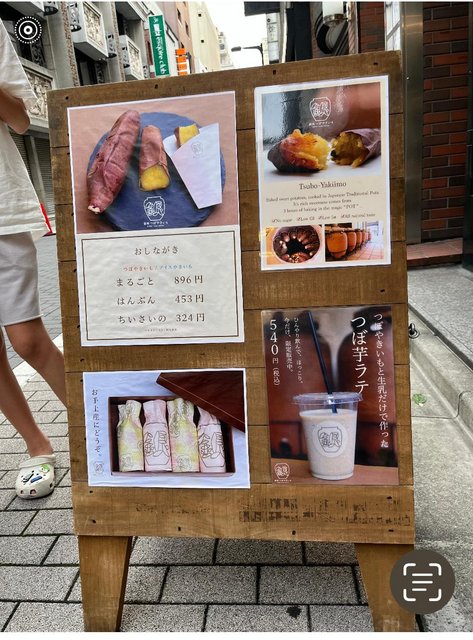 おしながき
つぼやきいも/アイスやきいも
まるごと 896円
はんぶん 453円
ちいさいの 324円
Tsubo-Yakiimo
Baked sweet potatoes, cooked in Japanese Traditional Pots.
It's rich sweetness comes from
3 hours of baking in the magic "POT"
お手土産にどうぞ。
つぼやきいもと生乳だけで作った
つぼ芋ラテ
ひんやり飲んで、ほっこり。
今だけ、限定販売中。
540円(税込)